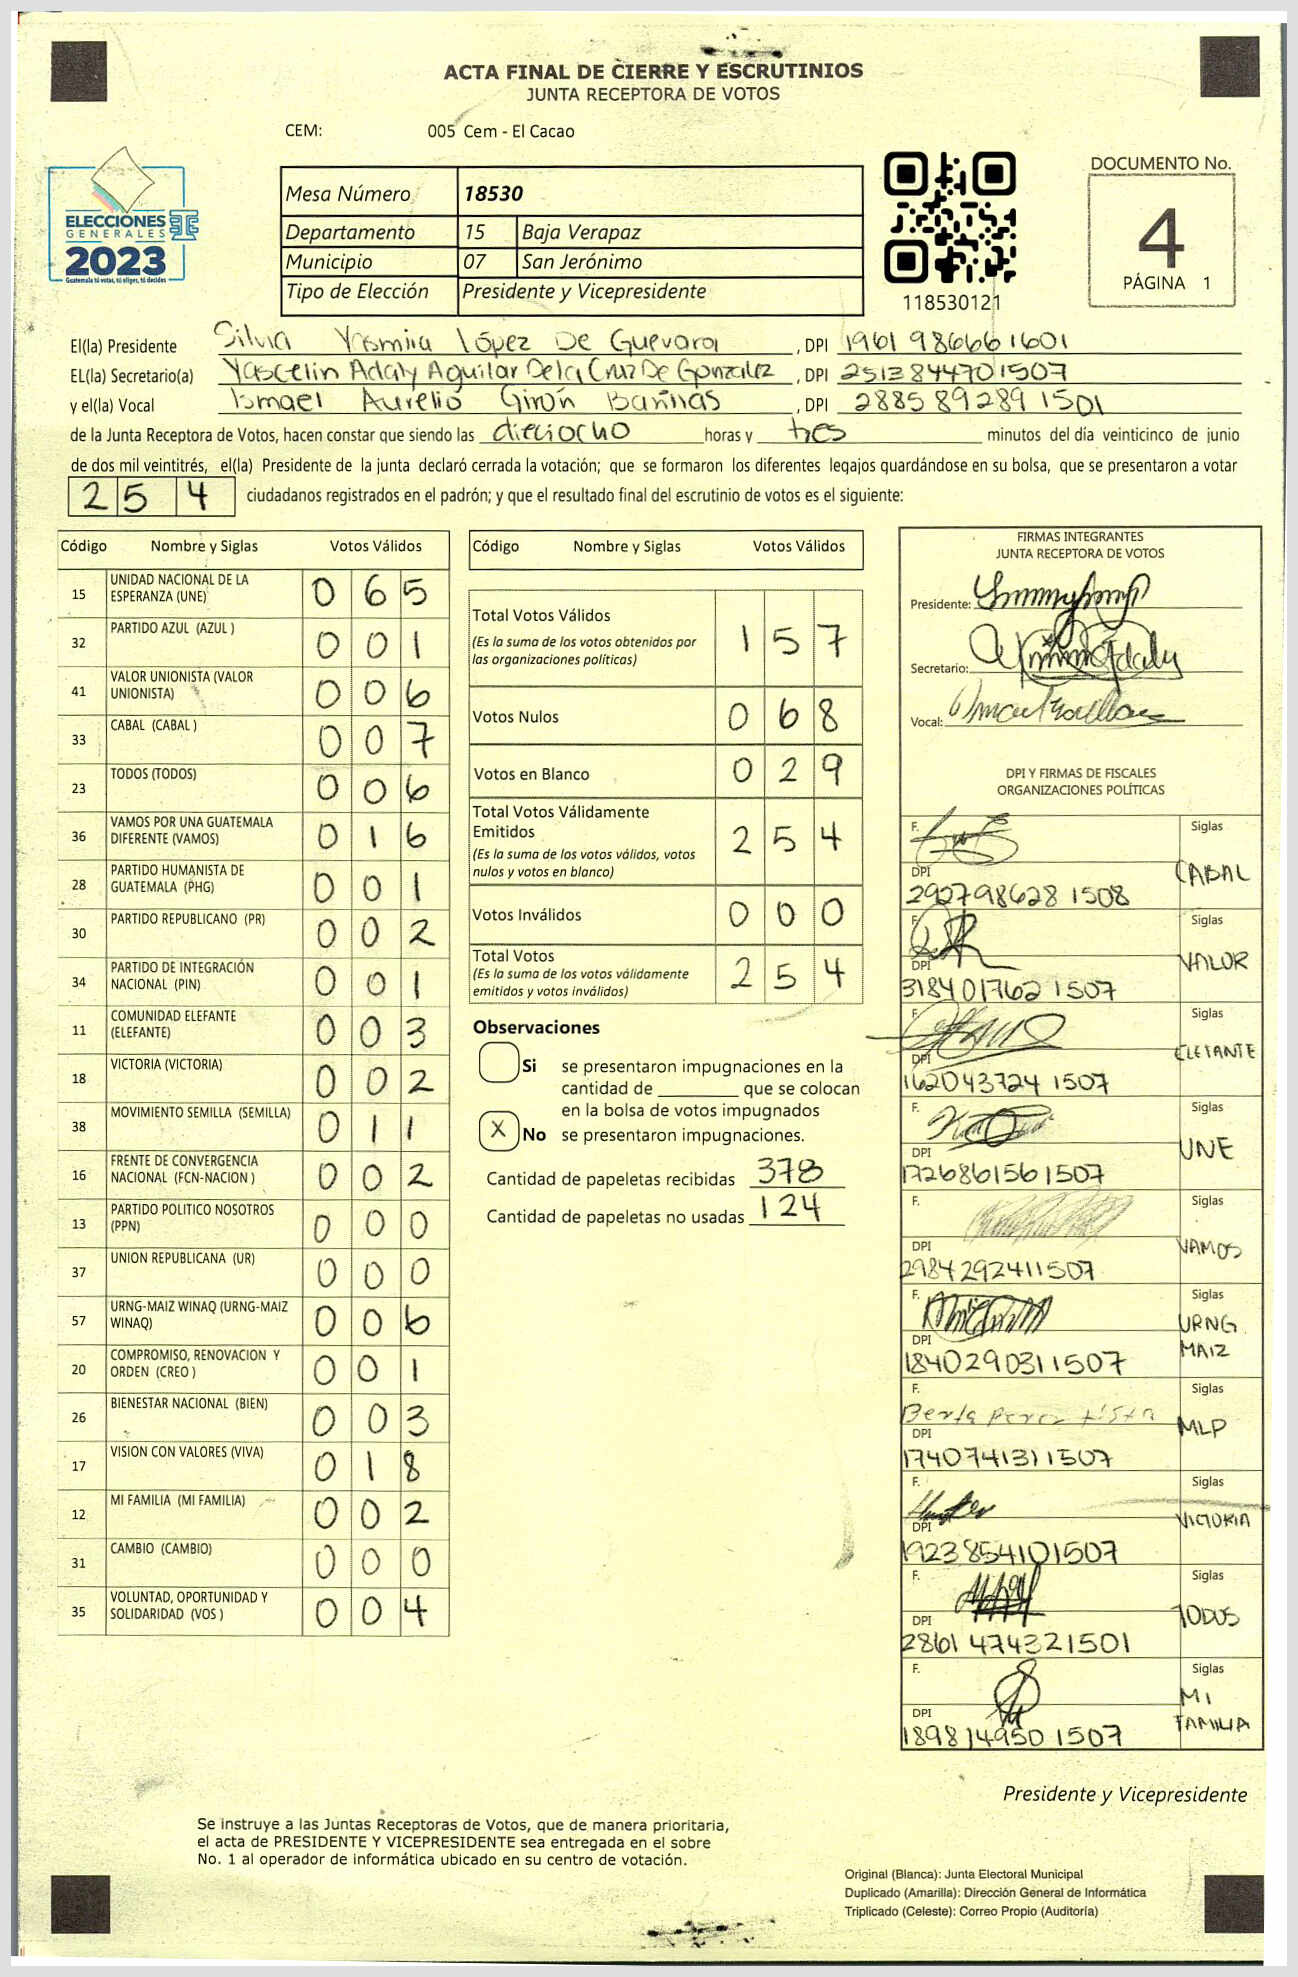 ACTA FINAL DE CIERRE Y ESCRUTINIOS
JUNTA RECEPTORA DE VOTOS
CEM: 005 Cem - El Cacao
ELECCIONES
GENERALES
2023
Guatemala tú votas, tú eliges, tú decides
Mesa Número 18530
Departamento 15 Baja Verapaz
Municipio 07 San Jerónimo
Tipo de Elección Presidente y Vicepresidente
118530121
DOCUMENTO No.
4
PÁGINA 1
El(la) Presidente Silvia Yasmira López De Guevara, DPI 1961 98666 1601
EL(la) Secretario(a) Yascelin Adaly Aguilar De la Cruz De Gonzalez, DPI 2513844701507
y el(la) Vocal Ismael Aurelio Girón Barinas, DPI 2885 89289 1501
de la Junta Receptora de Votos, hacen constar que siendo las dieciocho horas y tres minutos del día veinticinco de junio
de dos mil veintitrés, el(la) Presidente de la junta declaró cerrada la votación; que se formaron los diferentes legajos guardándose en su bolsa, que se presentaron a votar
254 ciudadanos registrados en el padrón; y que el resultado final del escrutinio de votos es el siguiente:
Código Nombre y Siglas Votos Válidos
15 UNIDAD NACIONAL DE LA ESPERANZA (UNE) 0 6 5
32 PARTIDO AZUL (AZUL ) 0 0 1
41 VALOR UNIONISTA (VALOR UNIONISTA) 0 0 6
33 CABAL (CABAL ) 0 0 7
23 TODOS (TODOS) 0 0 6
36 VAMOS POR UNA GUATEMALA DIFERENTE (VAMOS) 0 1 6
28 PARTIDO HUMANISTA DE GUATEMALA (PHG) 0 0 1
30 PARTIDO REPUBLICANO (PR) 0 0 2
34 PARTIDO DE INTEGRACIÓN NACIONAL (PIN) 0 0 1
11 COMUNIDAD ELEFANTE (ELEFANTE) 0 0 3
18 VICTORIA (VICTORIA) 0 0 2
38 MOVIMIENTO SEMILLA (SEMILLA) 0 1 1
16 FRENTE DE CONVERGENCIA NACIONAL (FCN-NACION ) 0 0 2
13 PARTIDO POLITICO NOSOTROS (PPN) 0 0 0
37 UNION REPUBLICANA (UR) 0 0 0
57 URNG-MAIZ WINAQ (URNG-MAIZ WINAQ) 0 0 6
20 COMPROMISO, RENOVACION Y ORDEN (CREO ) 0 0 1
26 BIENESTAR NACIONAL (BIEN) 0 0 3
17 VISION CON VALORES (VIVA) 0 1 8
12 MI FAMILIA (MI FAMILIA) 0 0 2
31 CAMBIO (CAMBIO) 0 0 0
35 VOLUNTAD, OPORTUNIDAD Y SOLIDARIDAD (VOS ) 0 0 4
Código Nombre y Siglas Votos Válidos
Total Votos Válidos 1 5 7
(Es la suma de los votos obtenidos por
las organizaciones políticas)
Votos Nulos 0 6 8
Votos en Blanco 0 2 9
Total Votos Válidamente
Emitidos 2 5 4
(Es la suma de los votos válidos, votos
nulos y votos en blanco)
Votos Inválidos 0 0 0
Total Votos 2 5 4
(Es la suma de los votos válidamente
emitidos y votos inválidos)
Observaciones
Si se presentaron impugnaciones en la
cantidad de ________ que se colocan
en la bolsa de votos impugnados
X No se presentaron impugnaciones.
Cantidad de papeletas recibidas 378
Cantidad de papeletas no usadas 124
FIRMAS INTEGRANTES
JUNTA RECEPTORA DE VOTOS
Presidente:
Secretario:
Vocal:
DPI Y FIRMAS DE FISCALES
ORGANIZACIONES POLÍTICAS
F. Siglas
CABAL
DPI
292798628 1508
F. Siglas
VALOR
DPI
318401762 1507
F. Siglas
ELEFANTE
DPI
162043724 1507
F. Siglas
UNE
DPI
172686156 1507
F. Siglas
VAMOS
DPI
2984292411507
F. Siglas
URNG
MAIZ
DPI
1840290311507
F. Siglas
Berta Perez
MLP
DPI
1740741311507
F. Siglas
VICTORIA
DPI
1923854101507
F. Siglas
TODOS
DPI
2861474321501
F. Siglas
MI
FAMILIA
DPI
189814950 1507
Presidente y Vicepresidente
Se instruye a las Juntas Receptoras de Votos, que de manera prioritaria,
el acta de PRESIDENTE Y VICEPRESIDENTE sea entregada en el sobre
No. 1 al operador de informática ubicado en su centro de votación.
Original (Blanca): Junta Electoral Municipal
Duplicado (Amarilla): Dirección General de Informática
Triplicado (Celeste): Correo Propio (Auditoría)